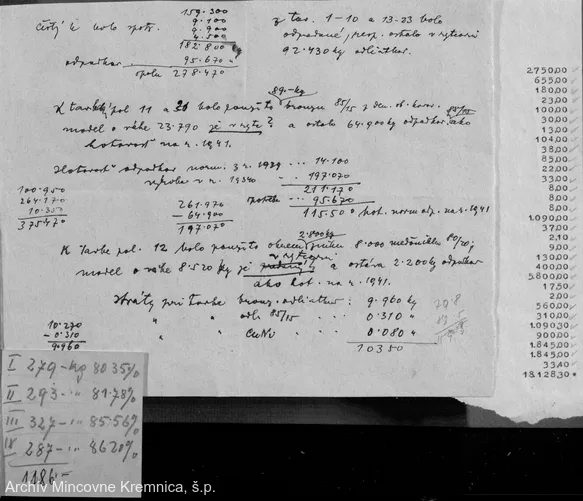 159.300
9.100
9.900
4.500
čistý k bolo spotr. 182.800
odpadkov 95.670
spolu 278.470
z tav. 1-10 a 13-23 bolo
odpadané, resp. ostalo v
92.430 kg odliatkov.
89.-kg
K tavbe pol 11 a 21 bolo použito bronzu 85/15 z
model o váhe 23.790 je v ? a ostalo 64.900 kg odpadkov ako
hotovosť na r. 1941.
Hotovosť odpadkov norm. z r. 1939 ... 14.100
výroba v r. 1940 - .. 197.070
211.170
100.950
264.170
10.350
375.470
261.970
- 64.900
197.070
-- 95.670
115.500 hot. norm. odp. na r. 1941
2.800 kg
K tavbe pol. 12 bolo použito niklu 8.000 80/20;
model o váhe 8.520 kg je a ostáva 2.200 kg odpadkov
ako hot. na r. 1941.
Straty pri tavbe bronz. odliatkov: 9.960 kg
" " odl. 85/15 ... 0.310 "
" " CuNi ... 0.080 "
10350
10.270
- 0.310
9.960
I 279 - kg 80.35%
II 293 - .. 81.78%
III 327 - .. 85.56%
IV 287 - .. 86.20%
1186 -
2750,00
655,00
180,00
23,00
100,00
30,00
13,00
104,00
38,00
85,00
22,00
33,00
8,00
8,00
1.090,00
37,00
2,10
9,00
130,00
400,00
5.800,00
17,50
2,00
560,00
310,00
1.090,30
900,00
1.845,00
1.845,00
33,40
18.128,30
Archív Mincovne Kremnica, š.p.